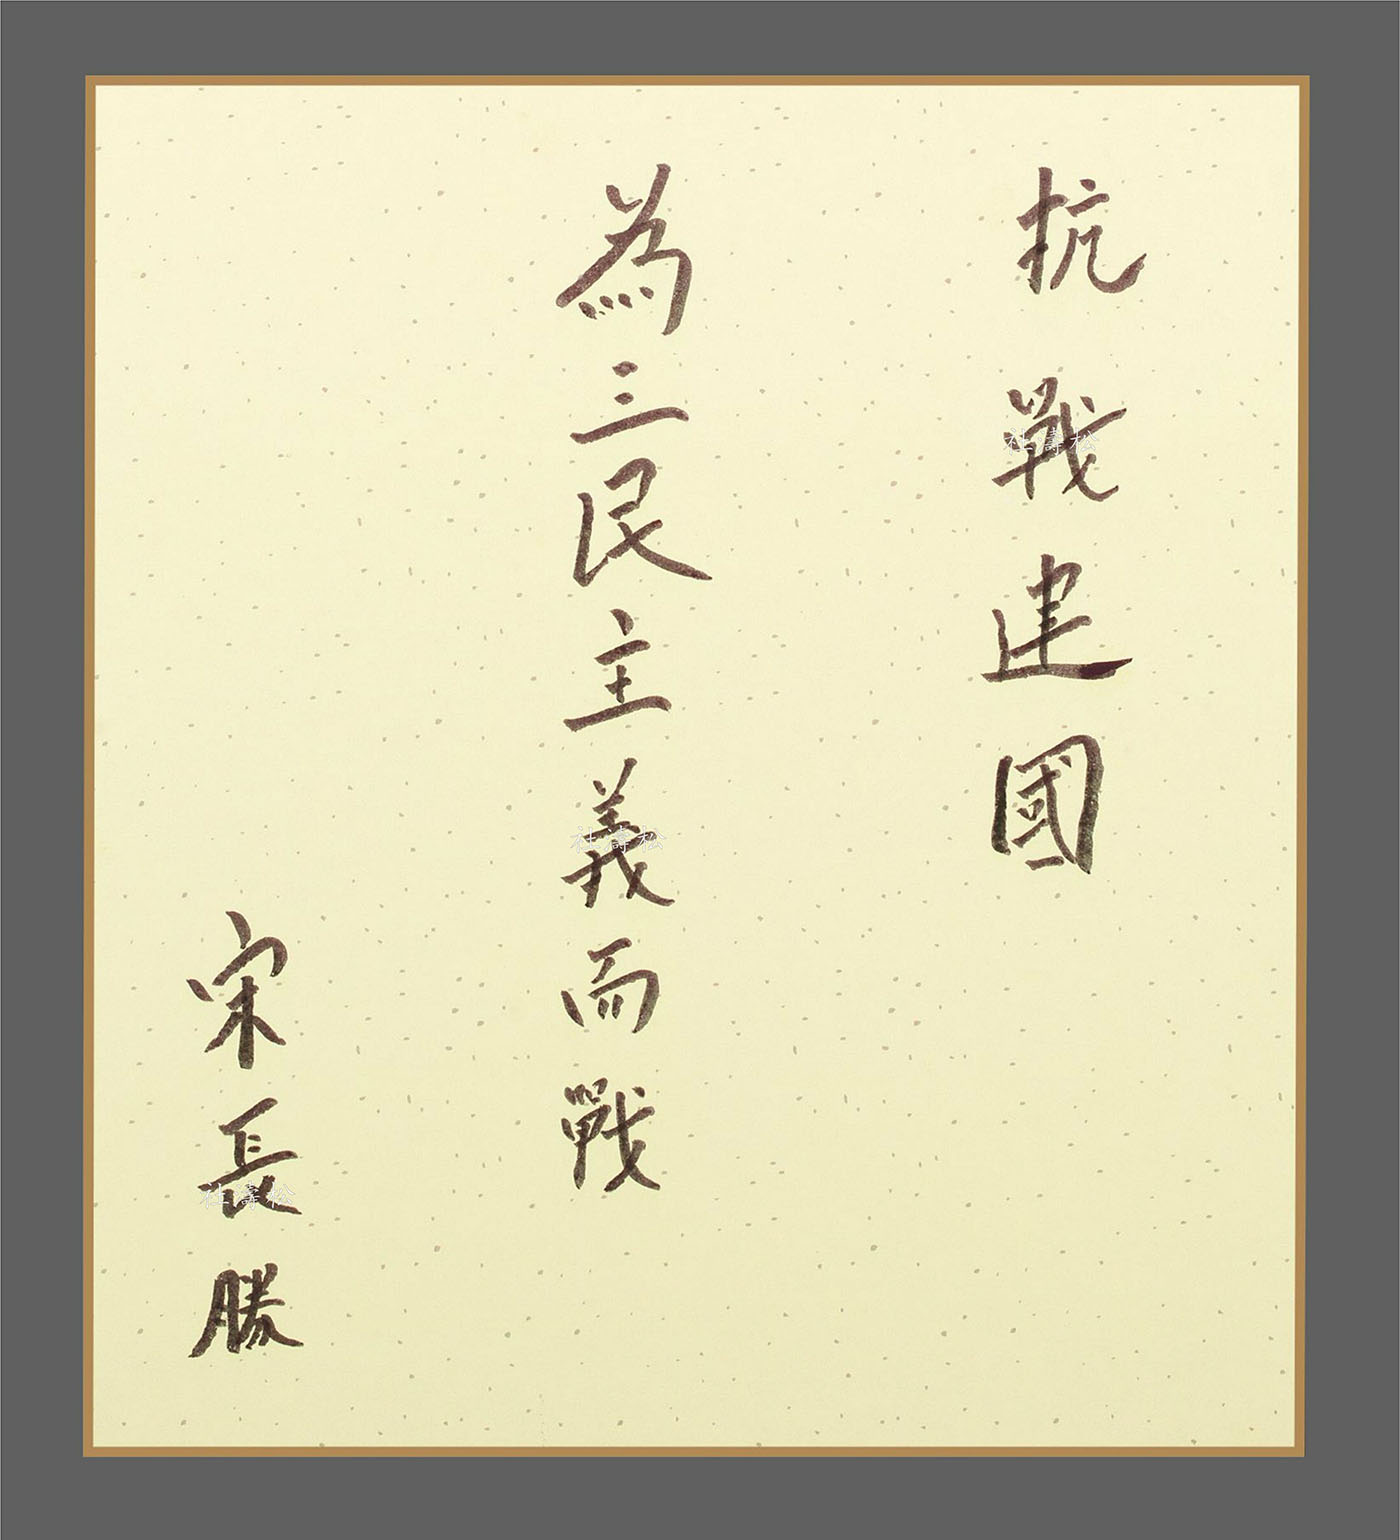 抗戰建國
為三民主義而戰
宋長勝
杜壽松
杜壽松
杜壽松